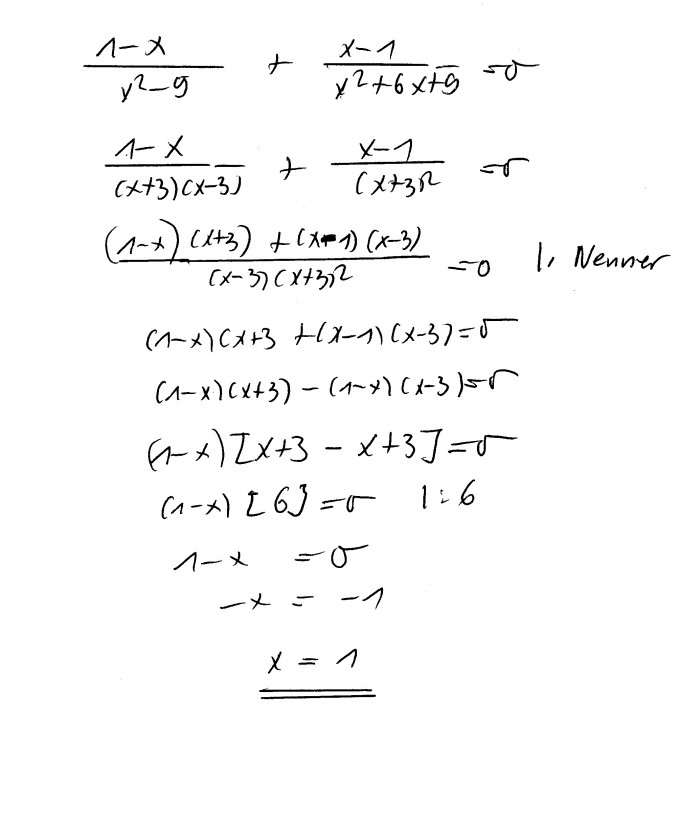 (1-x)/(x²-9) + (x-1)/(x²+6x+9) = 0
(1-x)/((x+3)(x-3)) + (x-1)/(x+3)² = 0
((1-x)(x+3) + (x-1)(x-3))/((x-3)(x+3)²) = 0 |· Nenner
(1-x)(x+3 + (x-1)(x-3) = 0
(1-x)(x+3) - (1-x)(x-3) = 0
(1-x)[x+3 - x+3] = 0
(1-x)[6] = 0 |:6
1-x = 0
-x = -1
x = 1